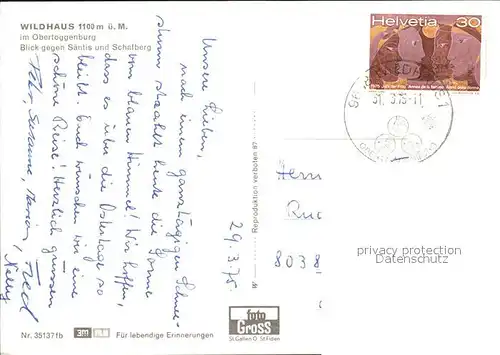 WILDHAUS 1100 m ü. M.
im Obertoggenburg
Blick gegen Säntis und Schafberg
Unsere Lieben,
nach einem ganztägigen Schnee-
sturm strahlt heute die Sonne
vom blauen Himmel! Wir hoffen,
dass es über die Ostertage so
bleibt. Euch wünschen wir eine
schöne Reise! Herzlich grüssen
Fred
Nelly
29.3.75
Reproduktion verboten 87
Helvetia 30
31.3.75-11
Herrn
8038
privacy protection
Datenschutz
foto
Gross
St.Gallen O. St.Fiden
Nr. 35137fb
3m
Für lebendige Erinnerungen